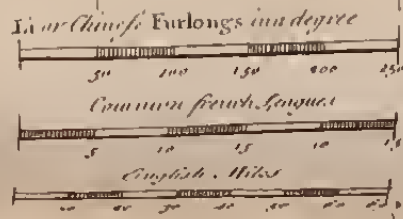 Li or Chineſe Furlongs in a degree
50 100 150 200 250
Common french Leagues
5 10 15 20 25
English Miles
10 20 30 40 50 60